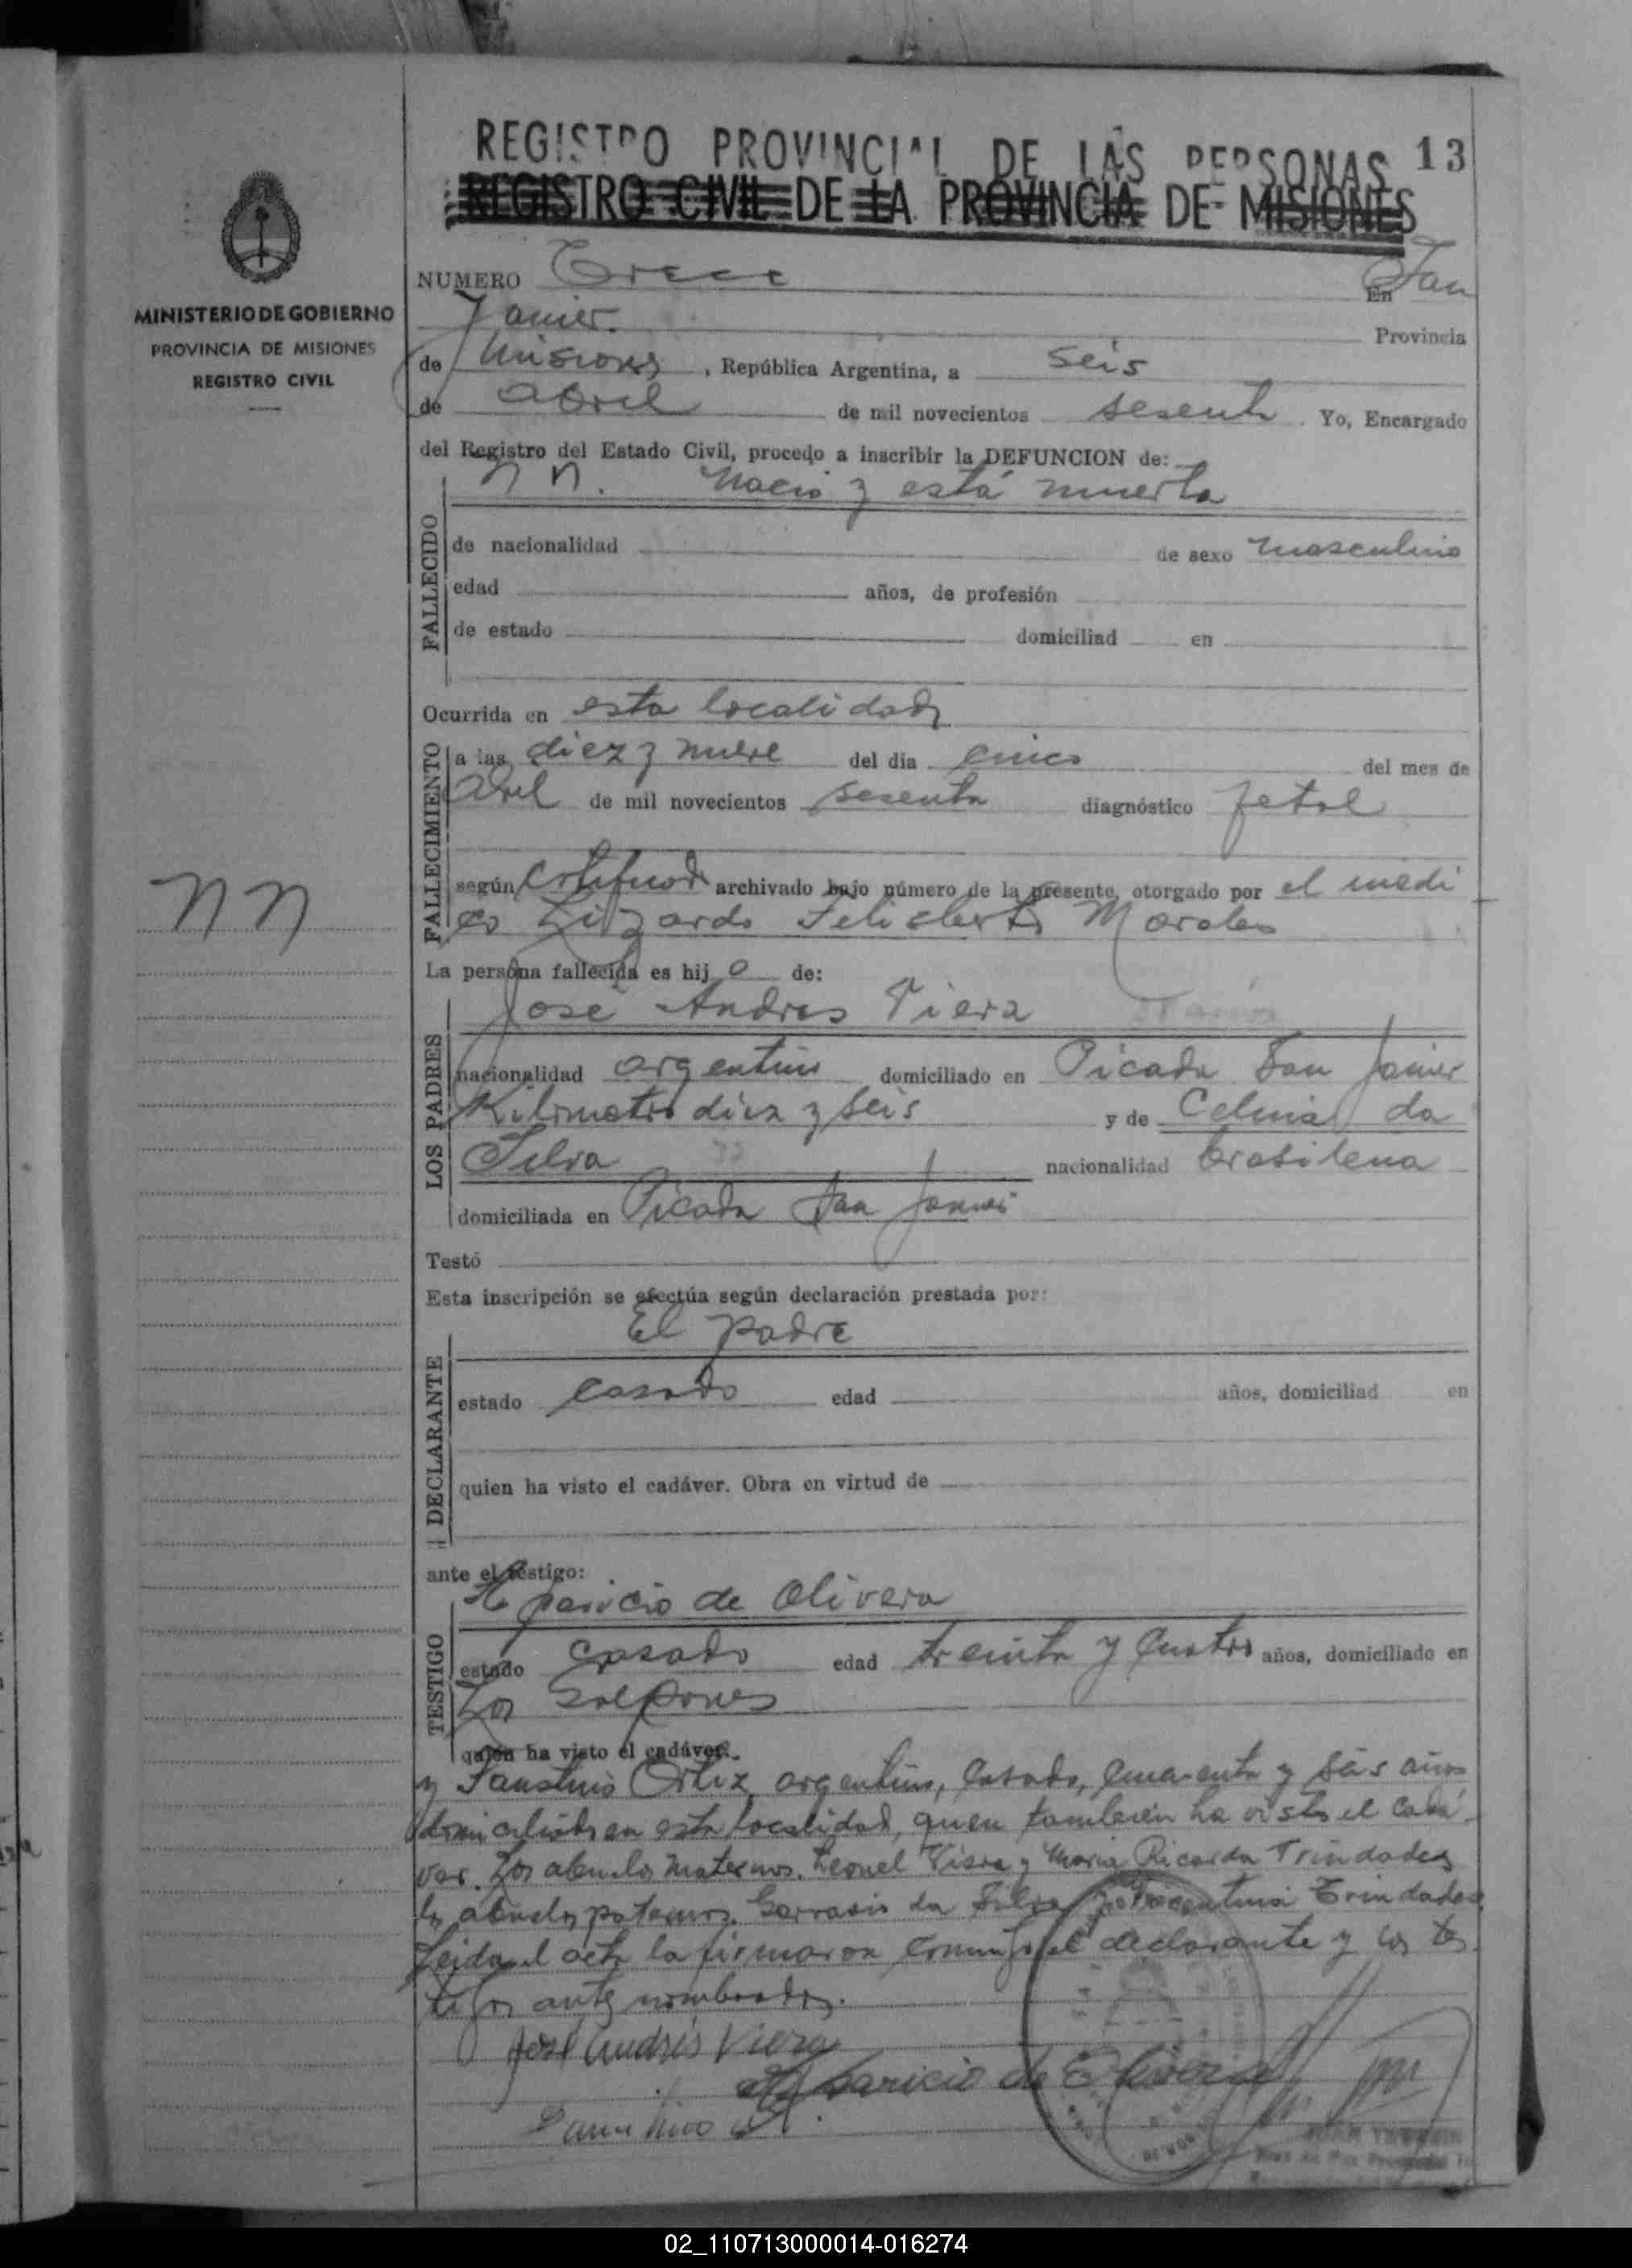 REGISTRO PROVINCIAL DE LAS PERSONAS 13
REGISTRO CIVIL DE LA PROVINCIA DE MISIONES
MINISTERIO DE GOBIERNO
PROVINCIA DE MISIONES
REGISTRO CIVIL
NUMERO Trece En San
Javier. Provincia
de Misiones, República Argentina, a seis
de abril de mil novecientos sesenta. Yo, Encargado
del Registro del Estado Civil, procedo a inscribir la DEFUNCION de:
FALLECIDO
n n. Nació y está muerta
de nacionalidad de sexo masculino
edad años, de profesión
de estado domiciliad en
Ocurrida en esta localidad
FALLECIMIENTO
a las diez y nueve del día cinco del mes de
abril de mil novecientos sesenta diagnóstico fetal
nn
según archivado bajo número de la presente, otorgado por el médi
co Lizardo Felisberto Morales
La persona fallecida es hijo de:
LOS PADRES
José Andres Viera
nacionalidad argentino domiciliado en Picada San Javier
Kilometro diez y seis y de Celmia da
Silva nacionalidad brasilena
domiciliada en Picada San Javier
Testó
Esta inscripción se efectúa según declaración prestada por:
DECLARANTE
El padre
estado casado edad años, domiciliad en
quien ha visto el cadáver. Obra en virtud de
ante el testigo:
TESTIGO
Aparicio de Olivera
estado casado edad treinta y cuatro años, domiciliado en
Los Galpones
quien ha visto el cadáver.
y Faustino Ortiz, argentino, casado, cuarenta y seis años
domiciliado en esta localidad, quien tambien ha visto el cadá-
ver. Los abuelos maternos. Leonel Viera y Maria Ricarda Trindades
los abuelos paternos. Gervasio da Silva y Trindades.
Leida el acta la firmaron conmigo el declarante y los tes-
tigos antes nombrados.
José Andrés Viera
Aparicio de Olivera
Faustino
02_110713000014-016274